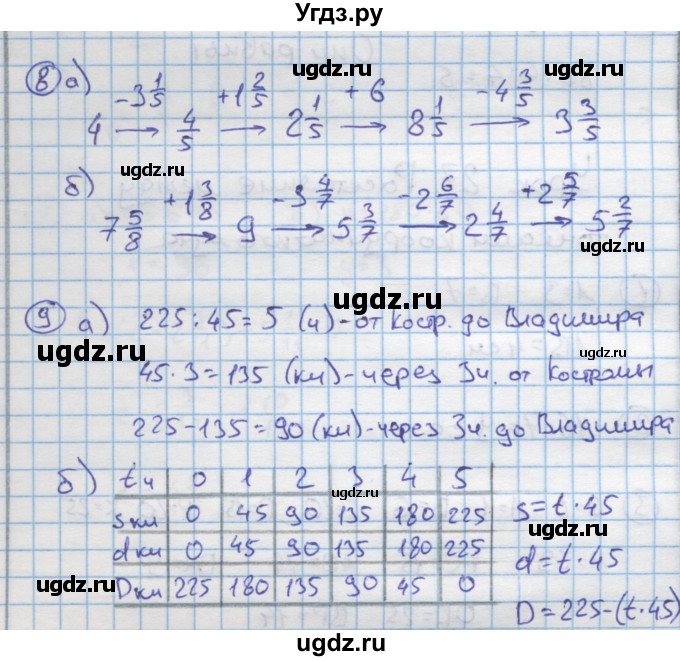 Угдз.ру
8 а) 4 —(-3 1/5)→ 4/5 —(+1 2/5)→ 2 1/5 —(+6)→ 8 1/5 —(-4 3/5)→ 3 3/5
б) 7 5/8 —(+1 3/8)→ 9 —(-3 4/7)→ 5 3/7 —(-2 6/7)→ 2 4/7 —(+2 5/7)→ 5 2/7
9 а) 225 : 45 = 5 (ч) - от Костр. до Владимира
45 · 3 = 135 (км) - через 3ч. от Костромы
225 - 135 = 90 (км) - через 3ч. до Владимира
б) t ч 0 1 2 3 4 5
s км 0 45 90 135 180 225
s = t · 45
d км 0 45 90 135 180 225
d = t · 45
D км 225 180 135 90 45 0
D = 225 - (t · 45)
ugdz.ru
ugdz.ru
ugdz.ru
ugdz.ru
ugdz.ru
ugdz.ru
ugdz.ru
ugdz.ru
ugdz.ru
ugdz.ru
ugdz.ru
ugdz.ru
ugdz.ru
ugdz.ru